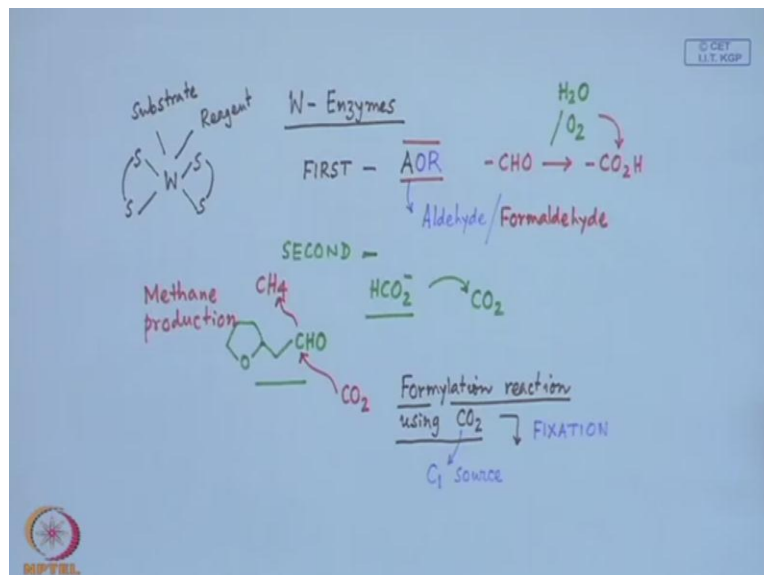 © CET
I.I.T. KGP
Substrate
Reagent
W- Enzymes
H2O
/O2
FIRST - AOR
-CHO → -CO2H
S
S
W
S
S
Aldehyde/Formaldehyde
SECOND -
HCO2-
CO2
Methane
production
CH4
O
CHO
CO2
Formylation reaction
using CO2
FIXATION
C1 source
NPTEL